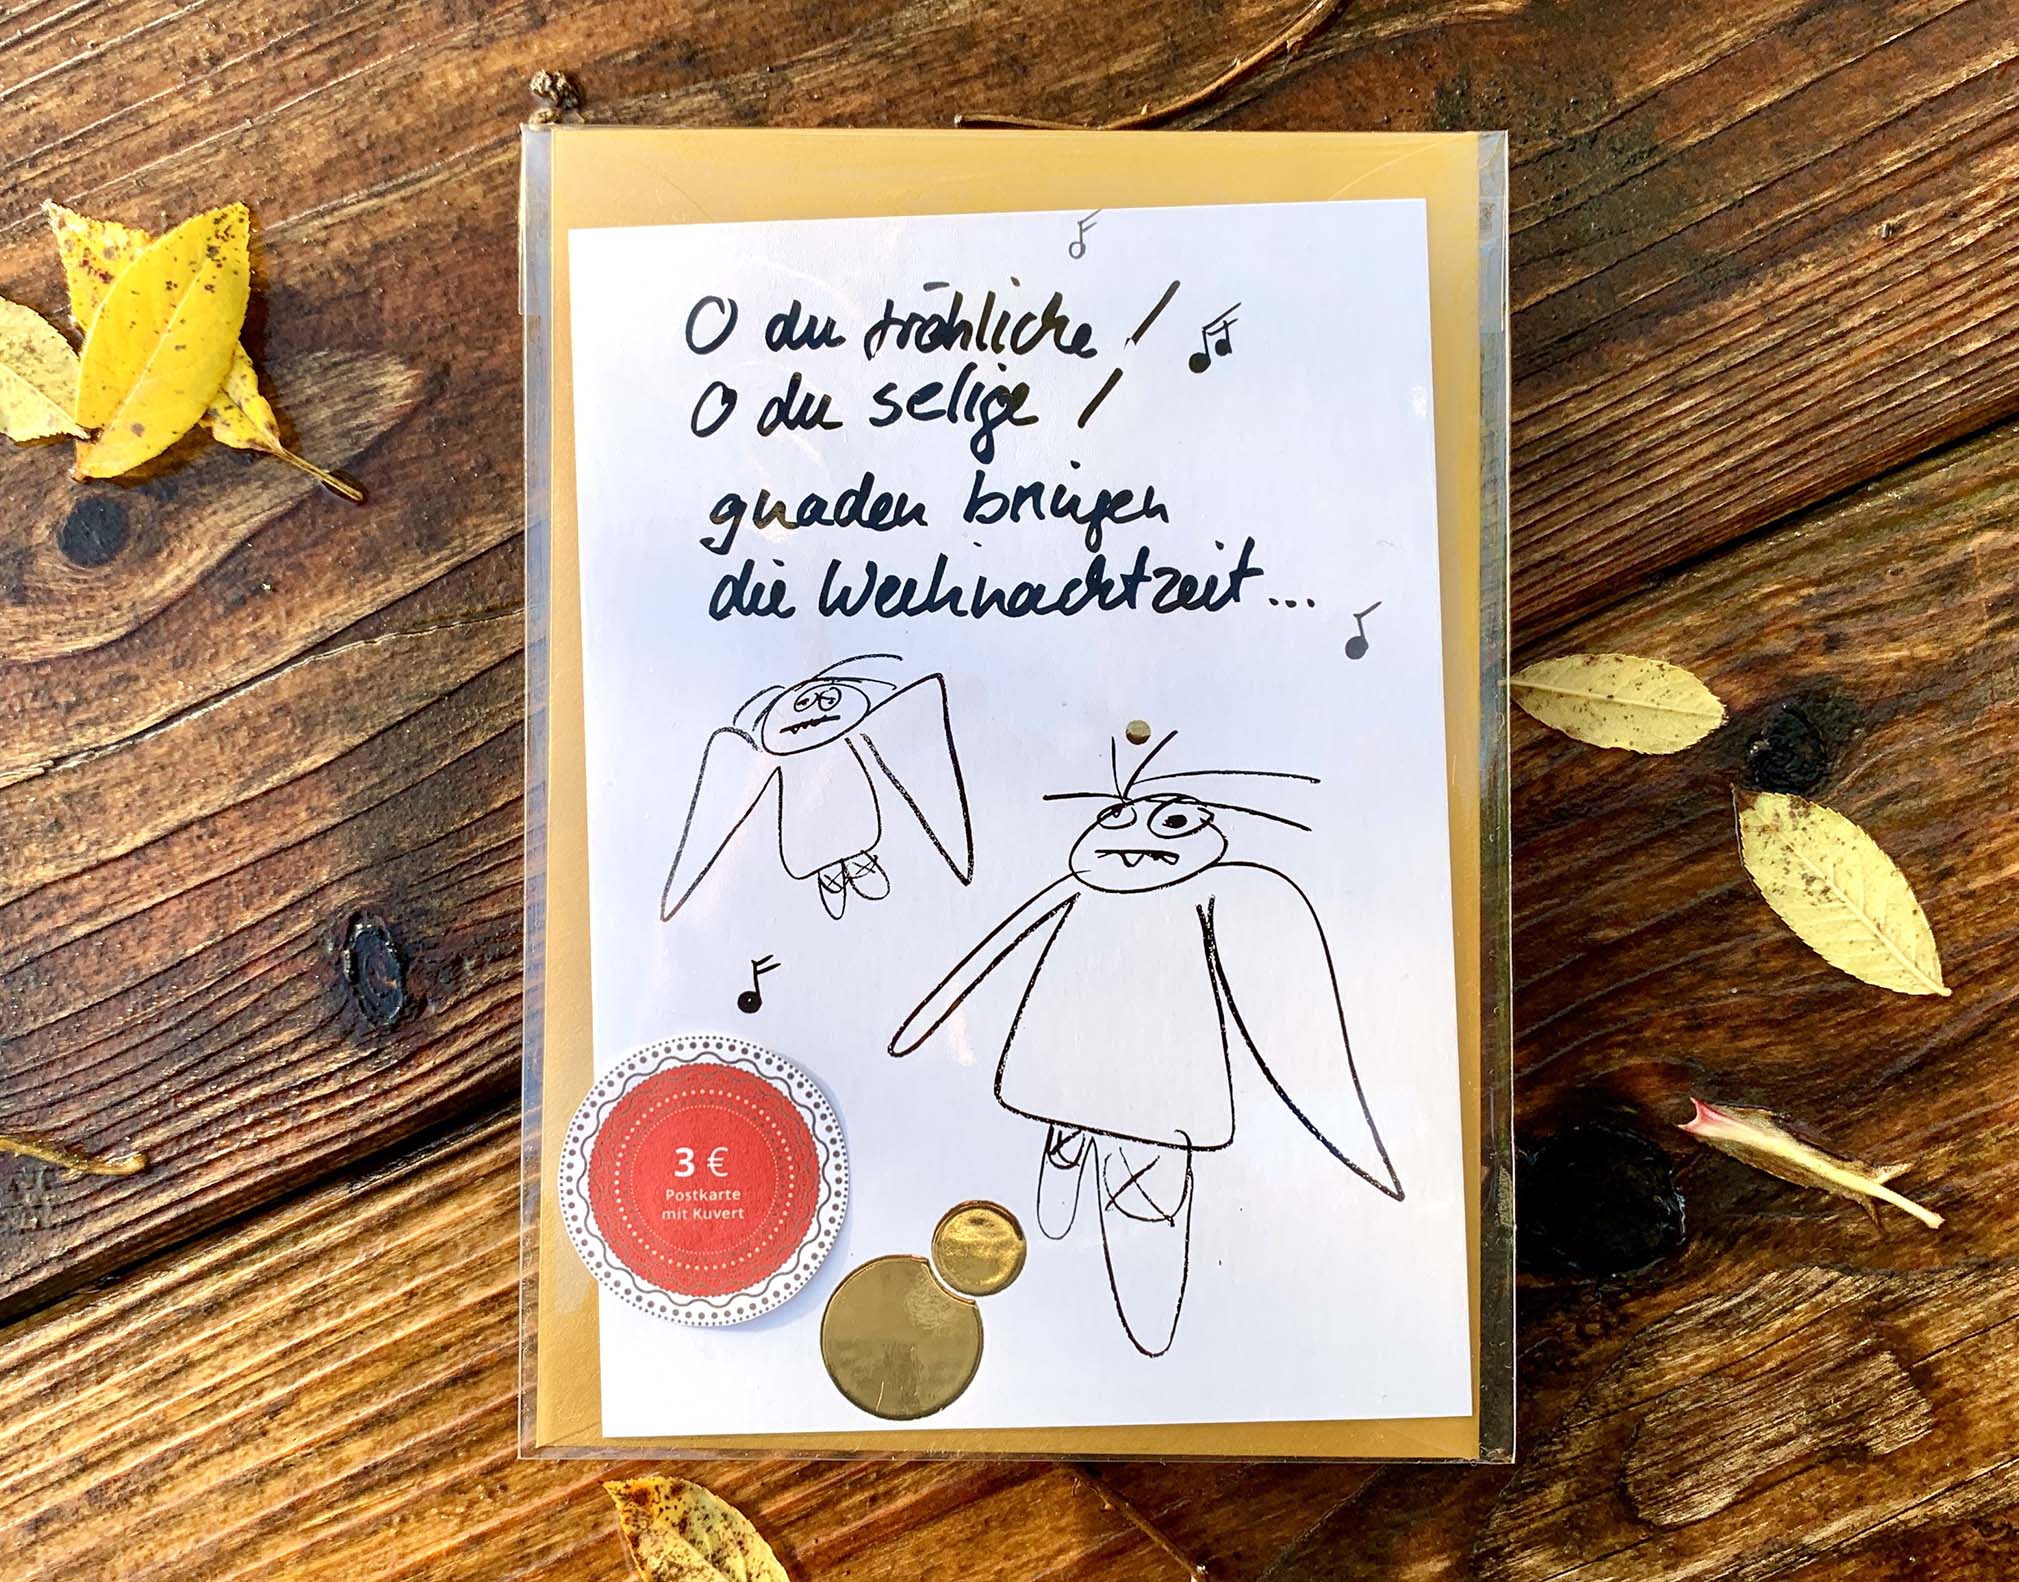 O du fröhliche!
O du selige!
gnaden bringen
die Weihnachtzeit...
3 €
Postkarte
mit Kuvert